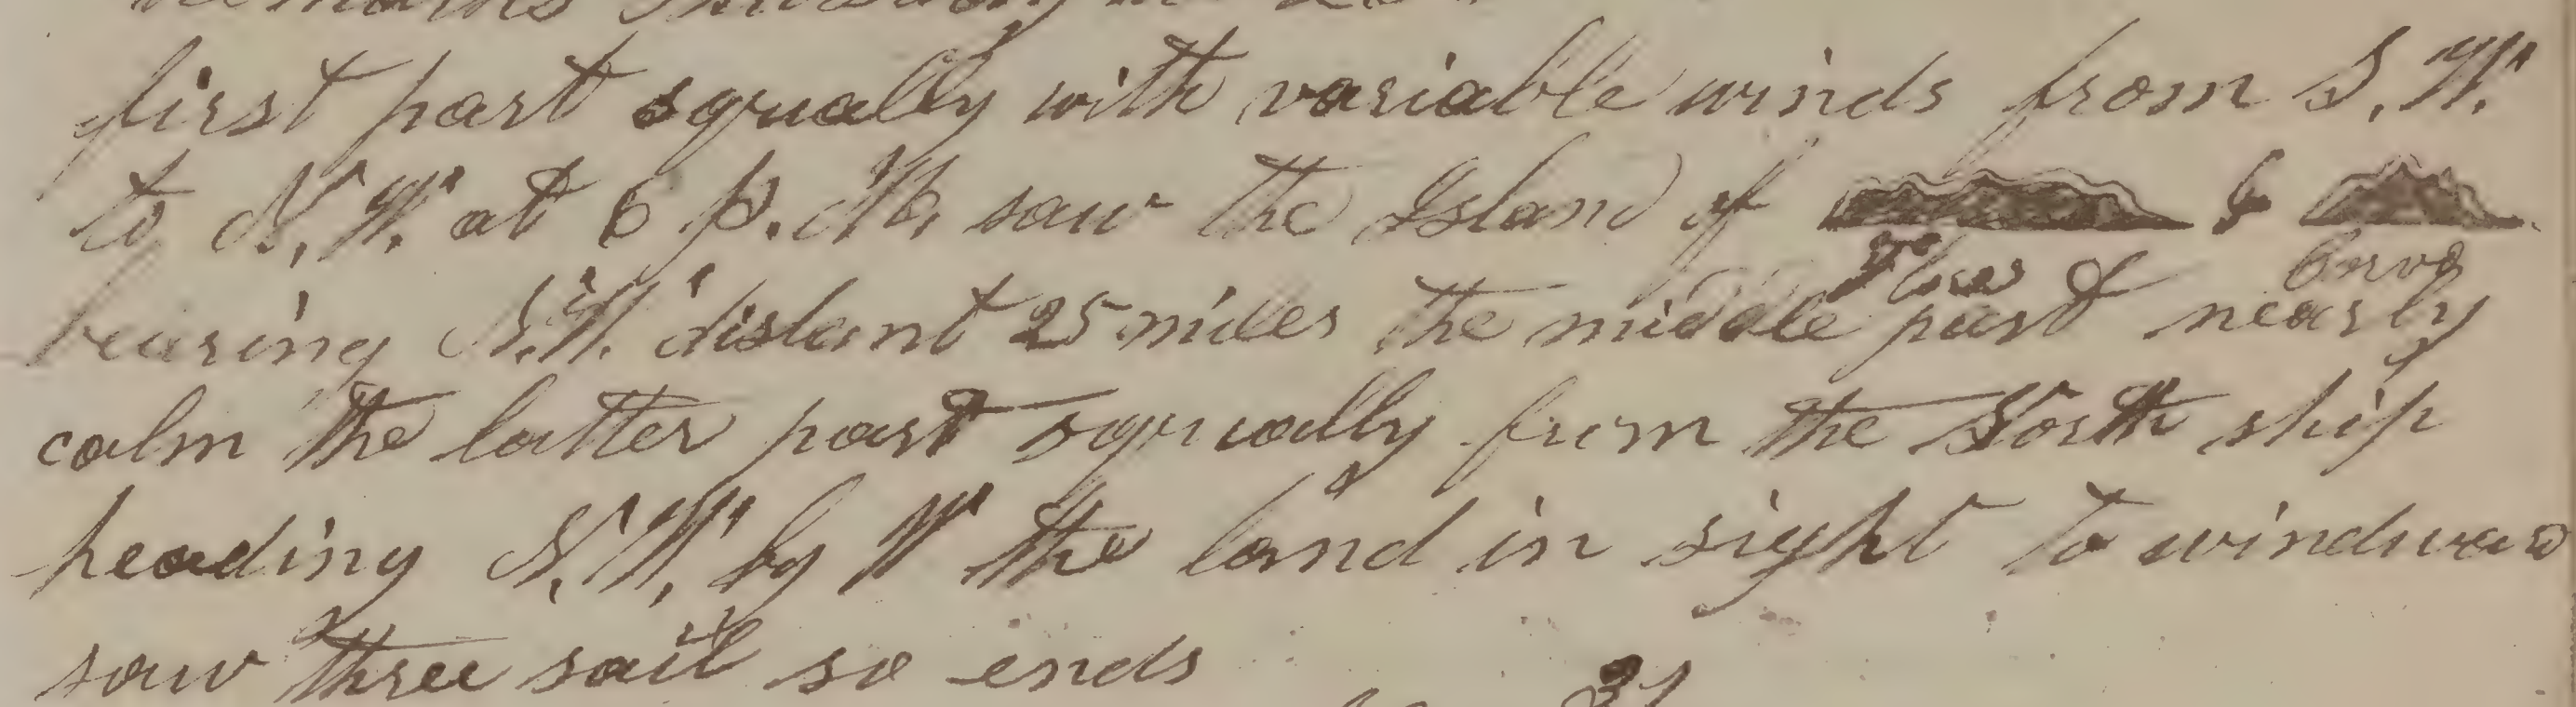 first part squally with variable winds from S. W.
to N. W. at 6 P. M. saw the Island of & 
Flores & Corvo
bearing N. W. distant 25 miles the middle part nearly
calm the latter part squally from the North ship
heading N. W. by W the land in sight to windward
saw three sail so ends
31